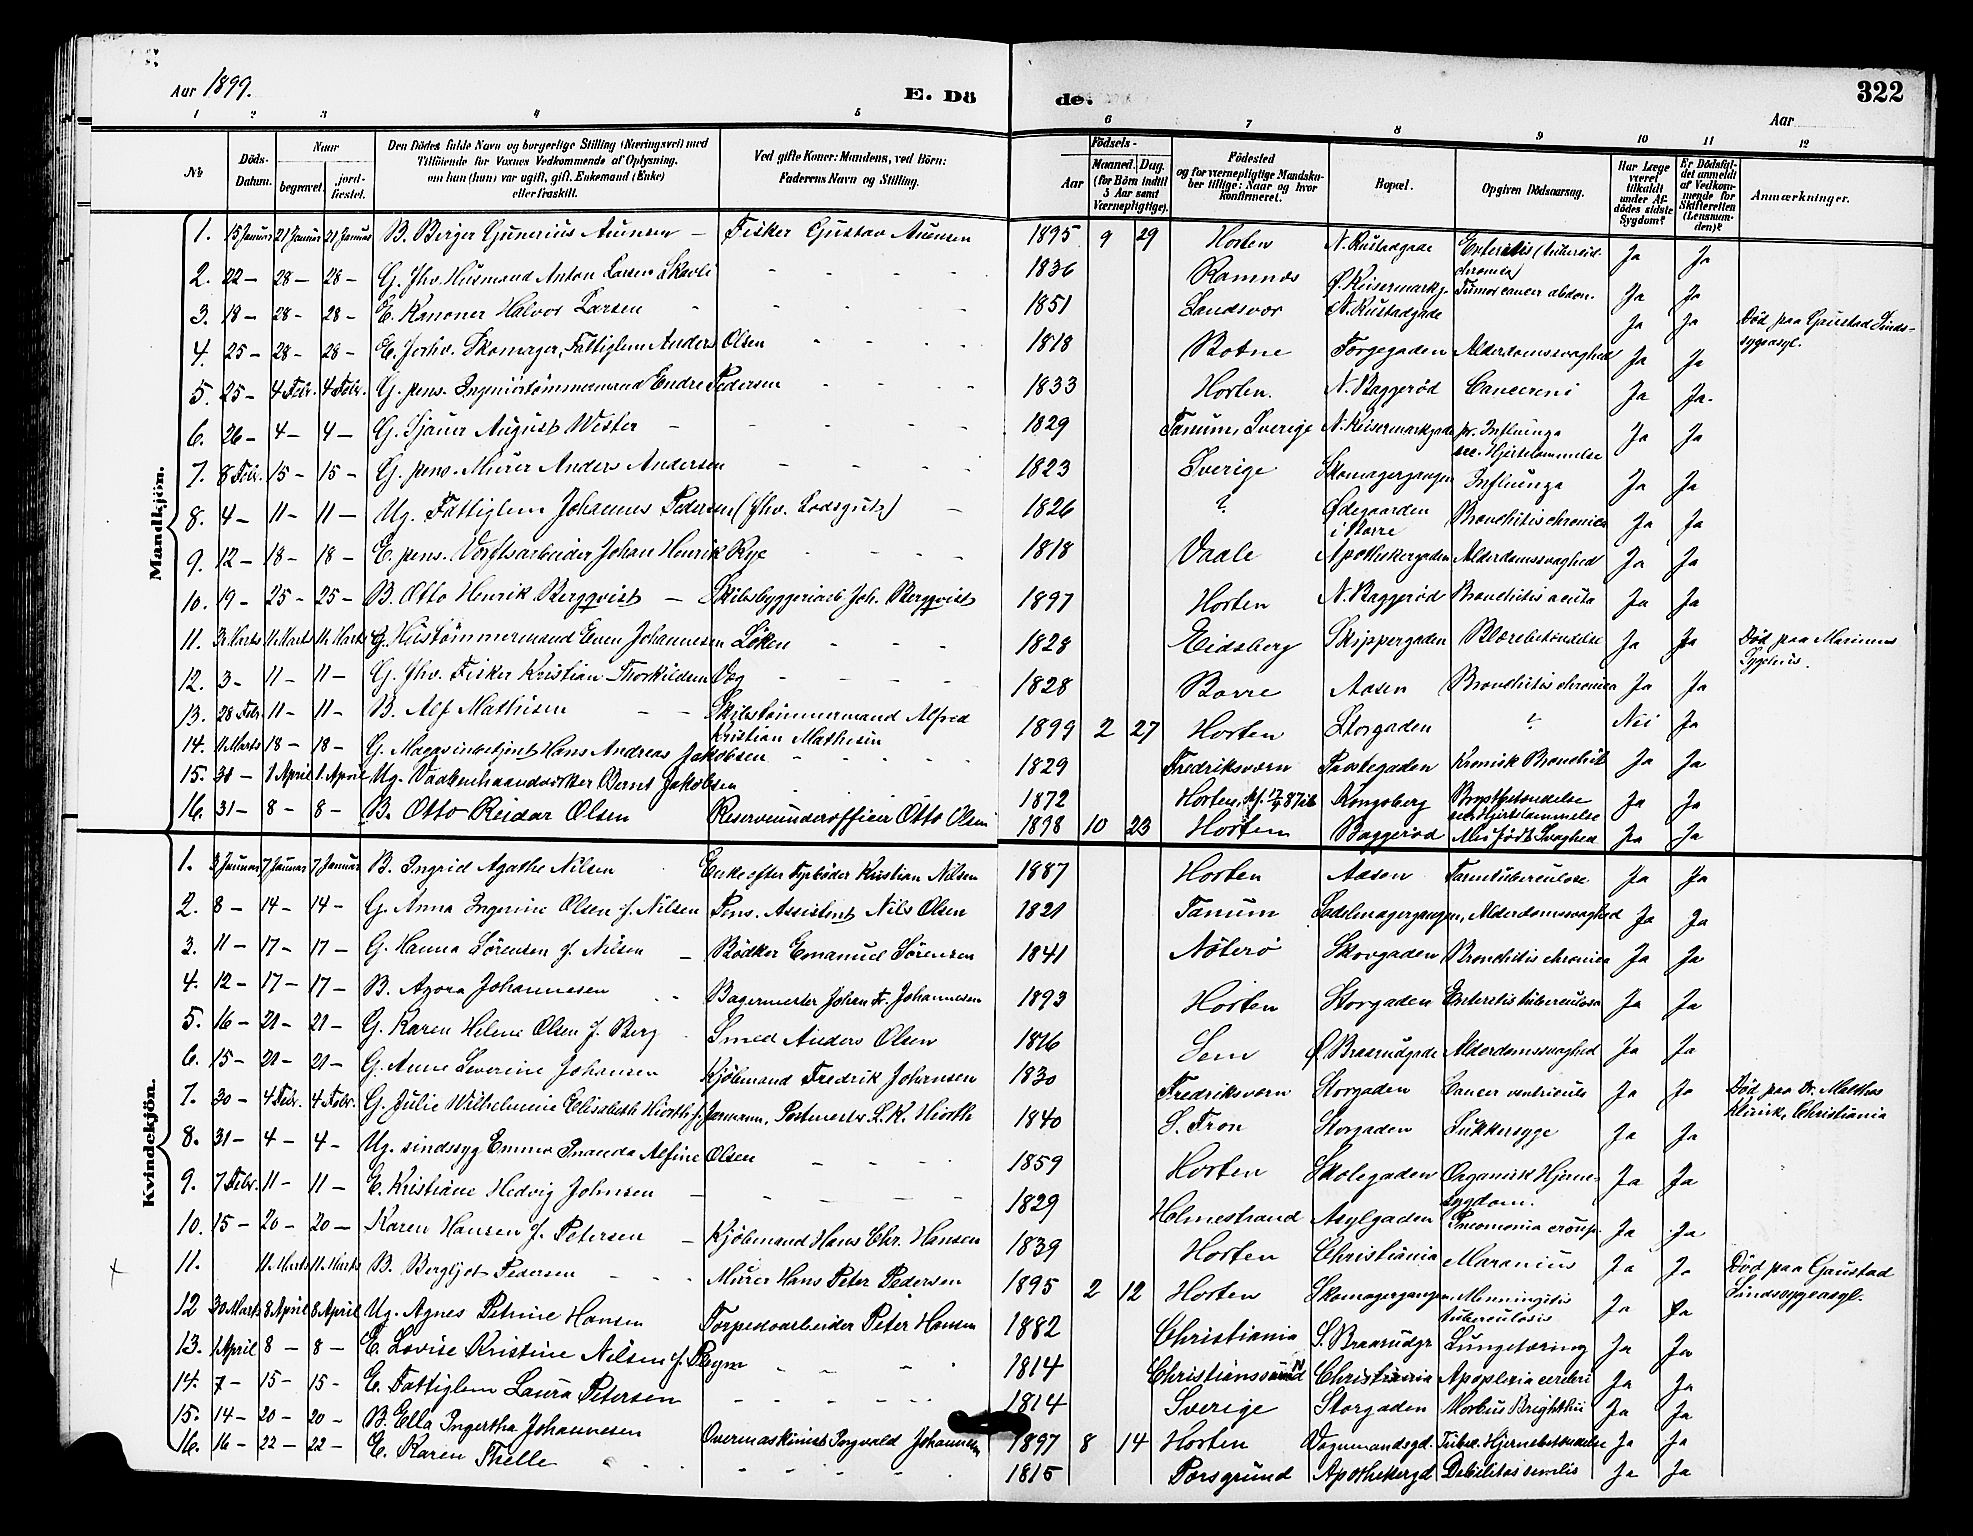 Aar 1899.
E. Dö de.
322
Aar
1 2 3 4 5 6 7 8 9 10 11 12
№ Döds-Datum. Naar begravet. jord-fæstet. Den Dödes fulde Navn og borgerlige Stilling (Næringsvei) med Tilföiende for Voxnes Vedkommende af Oplysning, om han (hun) var ugift, gift, Enkemand (Enke) eller fraskilt. Ved gifte Koner: Mandens, ved Börn: Faderens Navn og Stilling. Födsels- Aar Maaned. Dag. (for Börn indtil 5 Aar samt Værnepligtige). Födested og for værnepligtige Mandskaber tillige: Naar og hvor konfirmeret. Bopæl. Opgiven Dödsaarsag. Har Læge været tilkaldt under Afdödes sidste Sygdom? Er Dödsfaldet anmeldt af Vedkommende for Skifteretten (Lensmanden)? Anmærkninger.
Mandkjön.
1. 15 Januar 21 Januar 21 Januar B. Birger Gunerius Aunsen – Fisker Gustav Aunsen 1895 9 29 Horten N. Rustadgade Enteritis (tubercul. chronica) Ja Ja
2. 22 – 28 – 28 – G. fhv. Husmand Anton Larsen Skavli 1836 Ramnæs Ø. Keisermarkg. Tumor cancer abdom. Ja Ja
3. 18 – 28 – 28 – E. Kanoner Halvor Larsen 1851 Sandsvær N. Rustadgade Ja Ja Død paa Gaustad Sindssygeasyl.
4. 25 – 28 – 28 – E. forhv. Skomager, Fattiglem Anders Olsen 1818 Botne Torgegaden Alderdomssvaghed Ja Ja
5. 25 – 4 Febr. 4 Febr. G. pens. Ingeniørtømmermand Endre Pedersen 1833 Horten. N. Baggerød Ja Ja.
6. 26 – 4 – 4 – G. Sjauer August Wister 1829 Tanum, Sverige N. Keisermarkgade pr. Influenza sec. Hjertelammelse Ja Ja
7. 8 Febr. 15 – 15 – G. pens. Murer Anders Andersen 1823 Sverige Skomagergangen Influenza Ja Ja
8. 4 – 11 – 11 – Ug. Fattiglem Johannes Pedersen (fhv. Lodsgut) 1826 ? Ødegaarden i Borre Bronchitis chronica Ja Ja
9. 12 – 18 – 18 – E. pens. Værftsarbeider Johan Henrik Rye 1818 Vaale Apothekergaden Alderdomssvaghed Ja Ja
10. 19 – 25 – 25 – B. Otto Henrik Bergqvist – Skibsbyggeriarb. Joh. Bergqvist 1897 Horten N. Baggerød Bronchitis acuta Ja Ja
11. 3 Marts 11 Marts 11 Marts G. Hustømmermand Even Johannesen Løken 1828 Eidsberg Skippergaden Blærebetændelse Ja Ja Død paa Marinens Sygehus.
12. 3 – 11 – 11 – G. fhv. Fisker Kristian Thorkildsen Væg 1828 Borre Aasen Bronchitis chronica Ja Ja
13. 28 Febr. 11 – 11 – B. Alf Mathisen – – Skibstømmermand Alfred Kristian Mathisen 1899 2 27 Horten Storgaden ? Nei Ja
14. 11 Marts 18 – 18 – G. Magasinbetjent Hans Andreas Jakobsen 1829 Fredriksværn Præstegaden Kronisk Bronchit Ja Ja
15. 31 – 1 April 1 April Ug. Vaabenhaandværker Bernt Jakobsen 1872 Horten, kf. 87 Kongsberg Brystbetændelse sec. Hjertelammelse Ja Ja
16. 31 – 8 – 8 – B. Otto Reidar Olsen Reserveunderofficer Otto Olsen 1898 10 23 Horten Baggerød Medfødt Svaghed Ja Ja
Kvindekjön.
1. 3 Januar 7 Januar 7 Januar B. Ingrid Agathe Nilsen Enke efter Fyrbøder Kristian Nilsen 1887 Horten Aasen Tarmtuberculose Ja Ja
2. 8 – 14 – 14 – G. Anna Ingerine Olsen f. Nilsen Pens. Assistent Nils Olsen 1821 Tanum Sadelmagergangen, Alderdomssvaghed Ja Ja
3. 11 – 17 – 17 – G. Hanna Sørensen f. Nilsen – Bødker Emanuel Sørensen 1841 Nøterø Skovgaden Bronchitis chronica Ja Ja
4. 12 – 17 – 17 – B. Agora Johannesen Bagermester Johan Fr. Johannesen 1893 Horten Storgaden Enteritis tuberculosa Ja Ja
5. 16 – 21 – 21 – G. Karen Helene Olsen f. Berg Smed Anders Olsen 1816 Sem Ø. Braarudgade Alderdomssvaghed Ja Ja
6. 15 – 21 – 21 – G. Anne Severine Johansen Kjøbmand Fredrik Johansen 1830 Fredriksværn Storgaden Cancer ventriculi Ja Ja Død paa Dr. Malthes Klinik, Christiania
7. 30 – 4 Febr. 4 Febr. G. Julie Wilhelmine Elisabeth Hiorth f. Jarmann, Postmester L. K. Hiorth 1840 S. Fron Storgaden Sukkersyge Ja Ja
8. 31 – 4 – 4 – Ug. sindssyg Emma Amanda Alfine Olsen 1859 Horten Skolegaden Organisk Hjernesygdom. Ja Ja
9. 7 Febr. 11 – 11 – E. Kristiane Hedvig Johnsen 1829 Holmestrand Asylgaden Pneomonia croup. Ja Ja
10. 15 – 20 – 20 – Karen Hansen f. Petersen – Kjøbmand Hans Chr. Hansen 1839 Horten Christiania Ja Ja Død paa Gaustad Sindssygeasyl.
11. 11 Marts 11 Marts B. Bergljot Pedersen Murer Hans Peter Pedersen 1895 2 12 Horten Skomagergangen, Menningitis tuberculosis Ja Ja
12 30 Marts 8 April 8 April Ug. Agnes Petrine Hansen Torpedoarbeider Peter Hansen 1882 Christiania S. Braarudgr Lungetæring Ja Ja
13. 1 April 8 – 8 – E. Lovise Kristine Nilsen f. Brym 1814 Christianssund N Christiania Apoplexia cerebri Ja Ja
14. 7 – 15 – 15 – E. Fattiglem Laura Petersen 1814 Sverige Storgaden Morbus Brighthii Ja Ja
15. 14 – 20 – 20 – B. Ella Ingertha Johannesen Overmaskinist Torgvald Johannesen 1897 8 14 Horten Vognmandsgd. Tuber. Hjernebetændelse Ja Ja
16. 16 – 22 – 22 – E. Karen Thelle 1815 Porsgrund Apothekergd Debilitas senilis Ja Ja